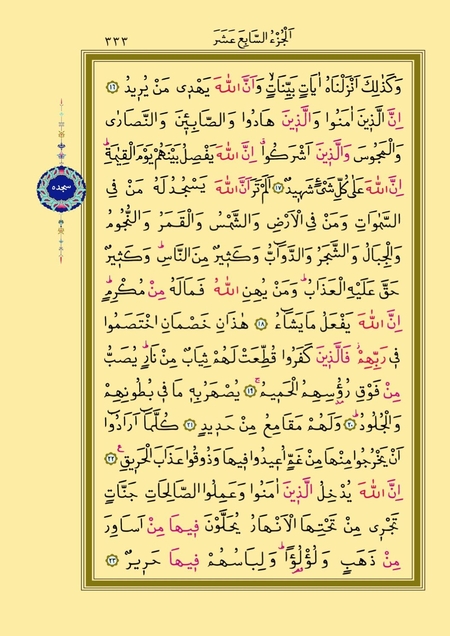 اَلْجُزْءُ السَّابِعَ عَشَرَ
٣٣٣
وَكَذٰلِكَ اَنْزَلْنَاهُ اٰيَاتٍ بَيِّنَاتٍۙ وَاَنَّ اللّٰهَ يَهْدٖى مَنْ يُرٖيدُ ﴿١٦﴾
اِنَّ الَّذٖينَ اٰمَنُوا وَالَّذٖينَ هَادُوا وَالصَّابِـٖٔينَ وَالنَّصَارٰى
وَالْمَجُوسَ وَالَّذٖينَ اَشْرَكُواۗ اِنَّ اللّٰهَ يَفْصِلُ بَيْنَهُمْ يَوْمَ الْقِيٰمَةِۜ
اِنَّ اللّٰهَ عَلٰى كُلِّ شَيْءٍ شَهٖيدٌ ﴿١٧﴾ اَلَمْ تَرَ اَنَّ اللّٰهَ يَسْجُدُ لَهُ مَنْ فِى
السَّمٰوَاتِ وَمَنْ فِى الْاَرْضِ وَالشَّمْسُ وَالْقَمَرُ وَالنُّجُومُ
وَالْجِبَالُ وَالشَّجَرُ وَالدَّوَابُّ وَكَثٖيرٌ مِنَ النَّاسِۜ وَكَثٖيرٌ
حَقَّ عَلَيْهِ الْعَذَابُۜ وَمَنْ يُهِنِ اللّٰهُ فَمَا لَهُ مِنْ مُكْرِمٍۜ
اِنَّ اللّٰهَ يَفْعَلُ مَا يَشَاءُ ﴿١٨﴾ هٰذَانِ خَصْمَانِ اخْتَصَمُوا
فٖى رَبِّهِمْۘ فَالَّذٖينَ كَفَرُوا قُطِّعَتْ لَهُمْ ثِيَابٌ مِنْ نَارٍۜ يُصَبُّ
مِنْ فَوْقِ رُؤُسِهِمُ الْحَمٖيمُۚ ﴿١٩﴾ يُصْهَرُ بِهٖ مَا فٖى بُطُونِهِمْ
وَالْجُلُودُۜ ﴿٢٠﴾ وَلَهُمْ مَقَامِعُ مِنْ حَدٖيدٍ ﴿٢١﴾ كُلَّمَا اَرَادُوا
اَنْ يَخْرُجُوا مِنْهَا مِنْ غَمٍّ اُعٖيدُوا فٖيهَا وَذُوقُوا عَذَابَ الْحَرٖيقِ ﴿٢٢﴾
اِنَّ اللّٰهَ يُدْخِلُ الَّذٖينَ اٰمَنُوا وَعَمِلُوا الصَّالِحَاتِ جَنَّاتٍ
تَجْرٖى مِنْ تَحْتِهَا الْاَنْهَارُ يُحَلَّوْنَ فٖيهَا مِنْ اَسَاوِرَ
مِنْ ذَهَبٍ وَلُؤْلُؤًاۜ وَلِبَاسُهُمْ فٖيهَا حَرٖيرٌ ﴿٢٣﴾
سجده